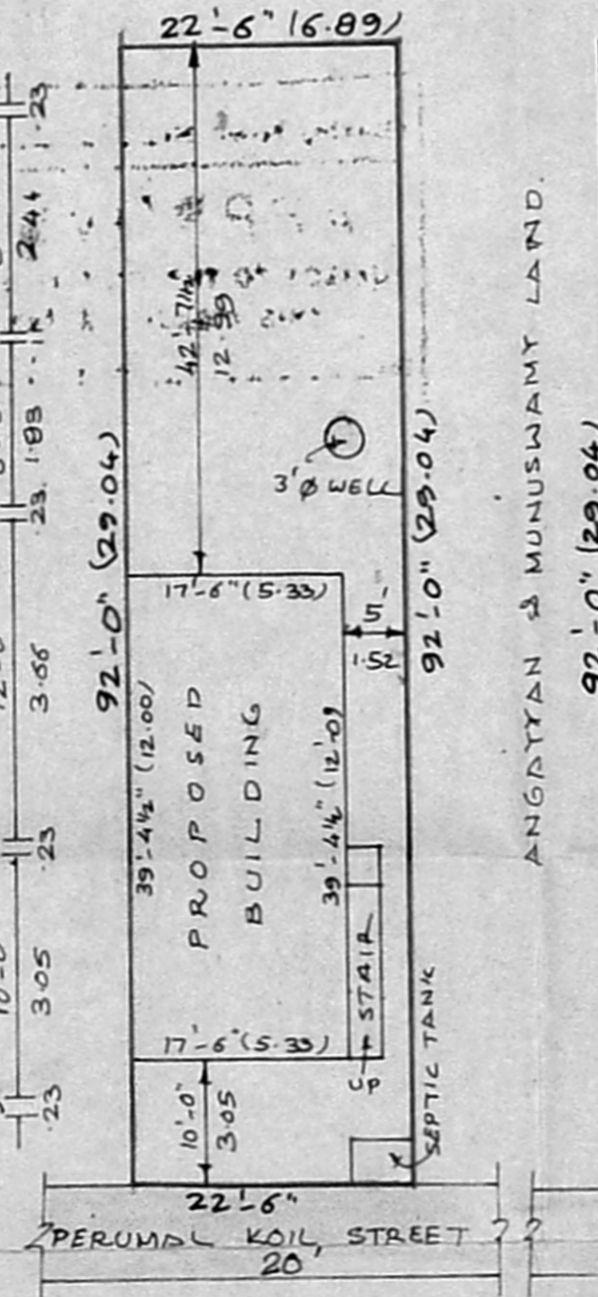 22'-6" (6.89)
.23
2.44
1.83
.23
3.66
.23
3.05
.23
42'-7½"
12.99
3'Ø WELL
92'-0" (29.04)
92'-0" (29.04)
ANGAYYAN & MUNUSWAMY LAND.
92'-0" (29.04)
17'-6" (5.33)
5'
1.52
39'-4½" (12.00)
PROPOSED
BUILDING
39'-4½" (12.0)
STAIR
17'-6" (5.33)
UP
SEPTIC TANK
10'-0"
3.05
22'-6"
PERUMAL KOIL STREET
20'